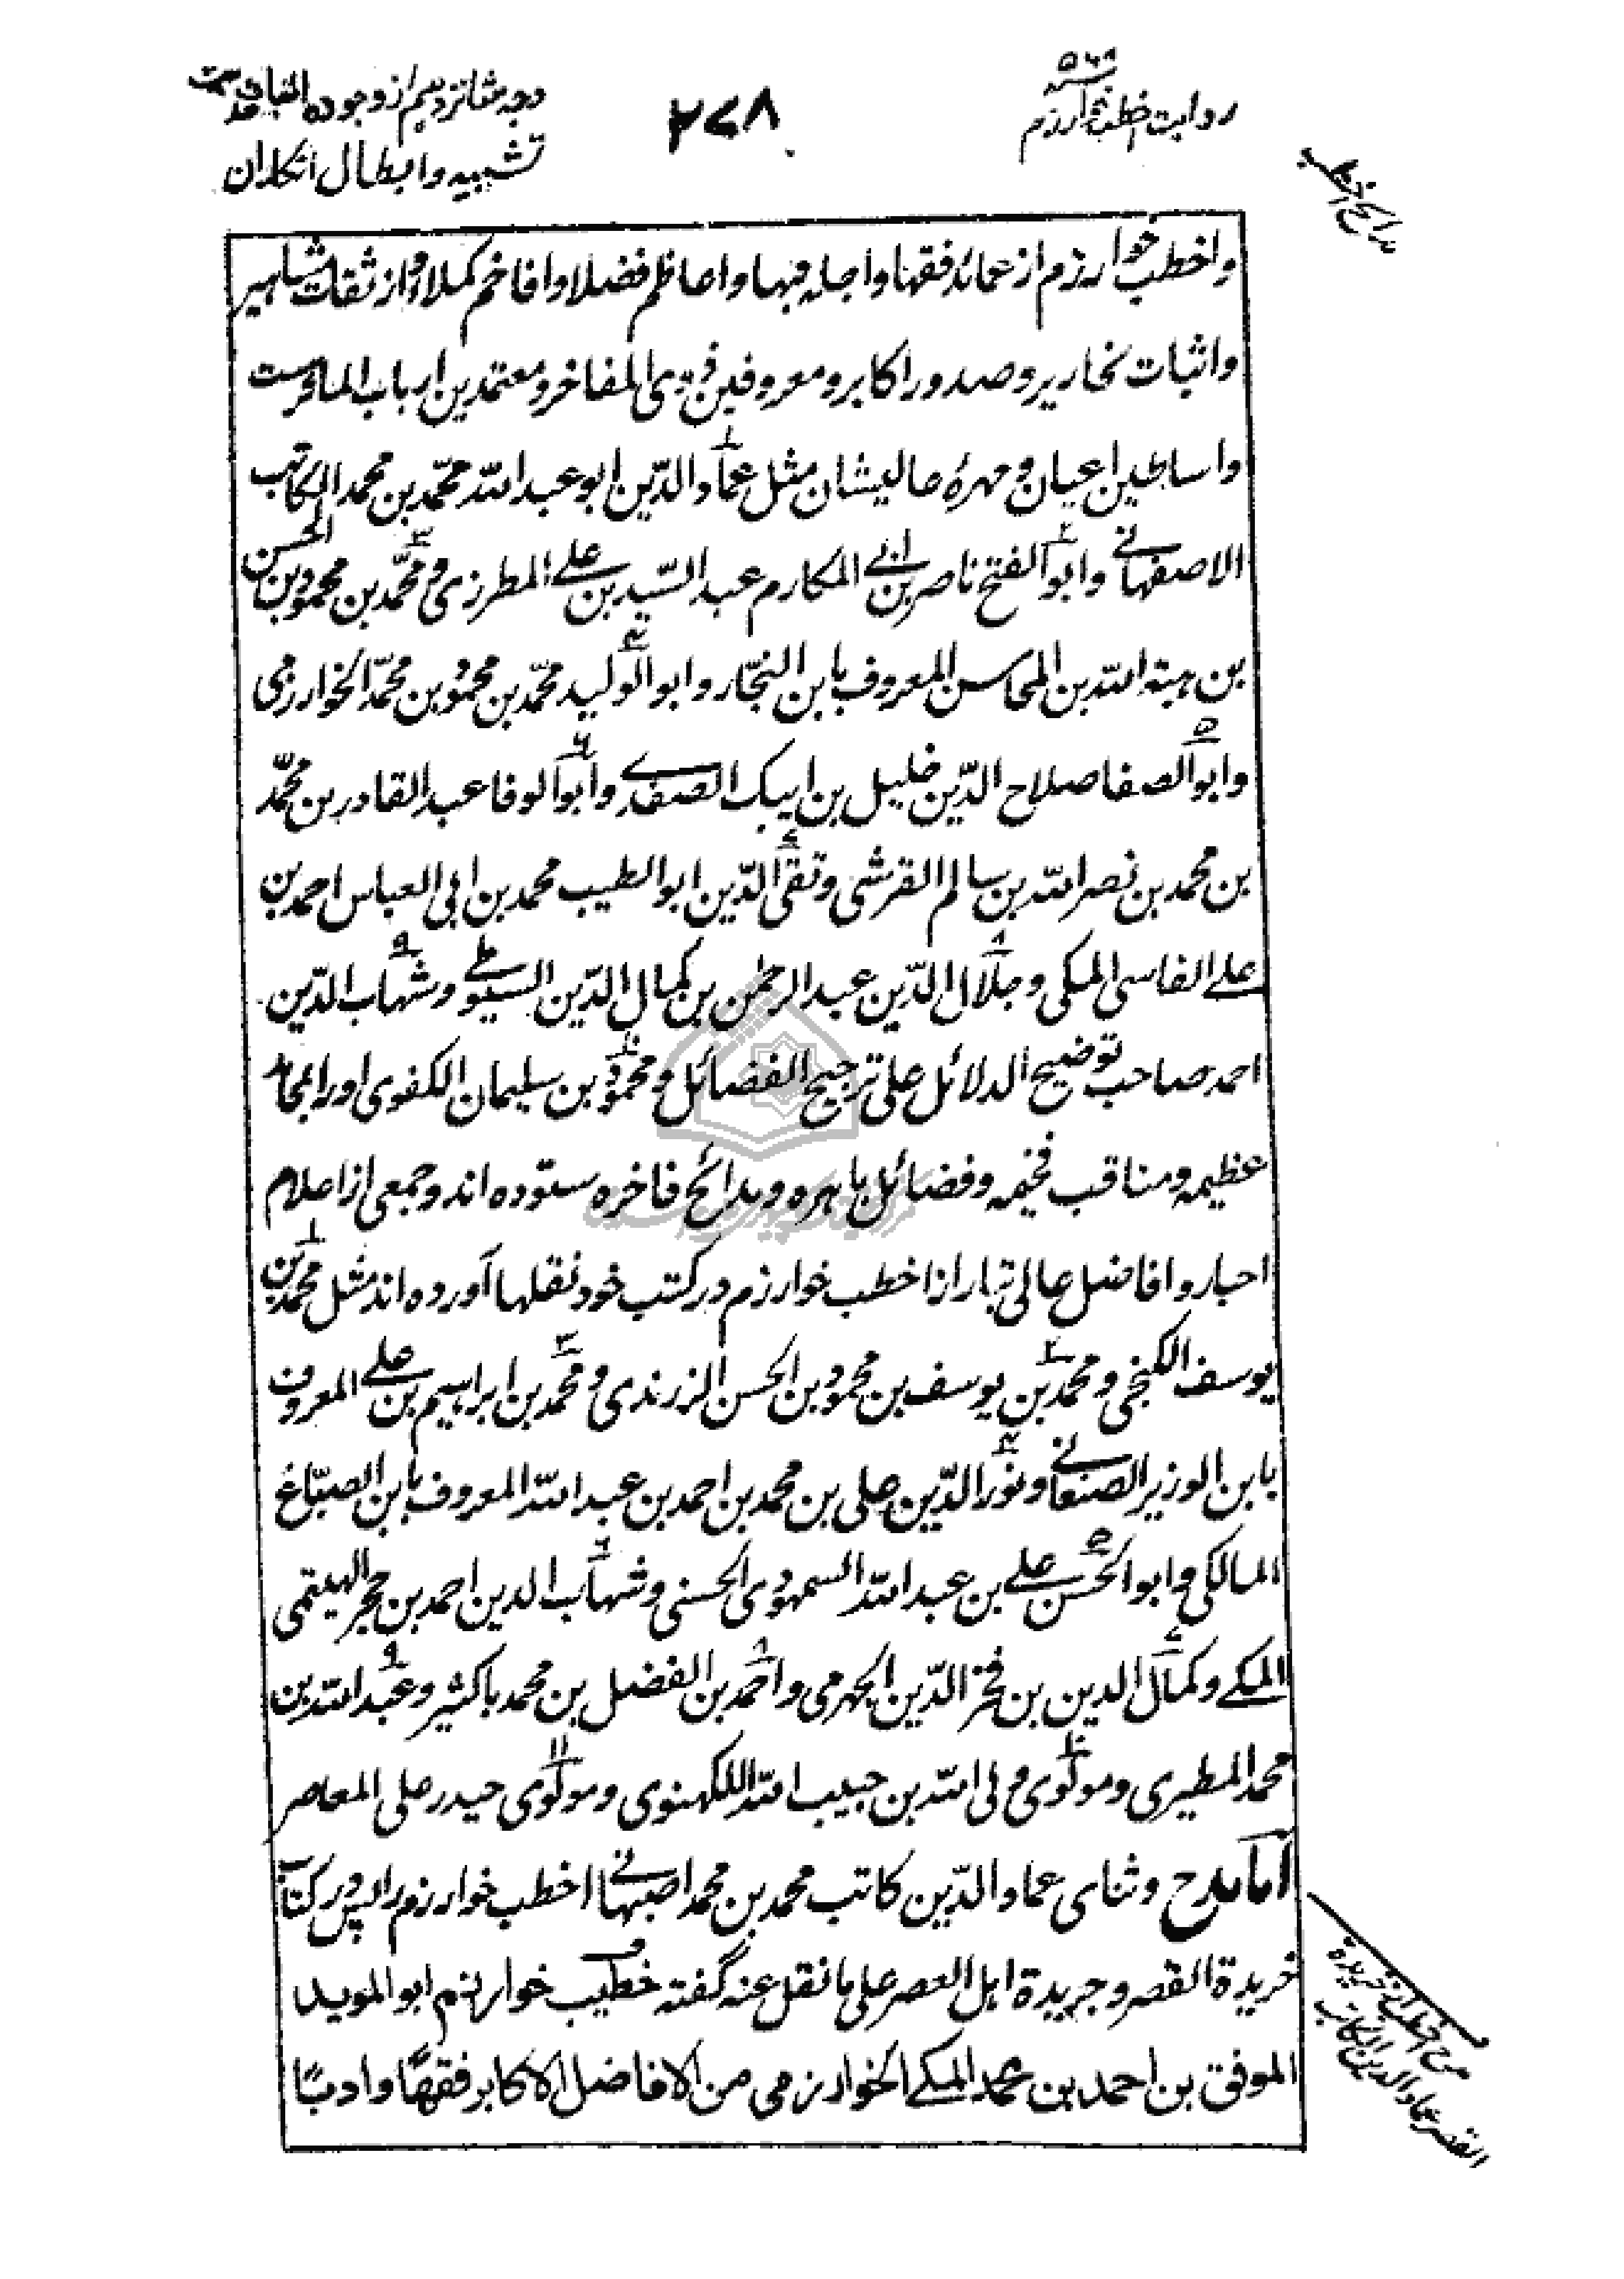 روایت اخطب خوارزم
سنه ۵۶۸
۲۷۸
وجه شانزدهم از وجوه اثبات حدیث
تشبیه و ابطال انکار آن
مدایح اخطب
و اخطب خوارزم از عمائد فقها و اجله نبها و اعاظم فضلا و افاخم کملا و از ثقات مشاهیر
و اثبات نحاریر و صدور اکابر و معروفین ذوی المفاخر و معتمدین ارباب الماثرست
و اساطین اعیان و مهرهٔ عالیشان مثل عماد الدّین ابو عبد اللّه محمّد بن محمد الکاتب
الاصفهانی و ابو الفتح ناصر بن ابی المکارم عبد السّید بن علی المطرزی و محمّد بن محمود بن الحسن
بن هبة اللّه بن المحاسن المعروف بابن النجّار و ابو الولید محمّد بن محمود بن محمّد الخوارزمی
و ابو الصفا صلاح الدّین خلیل بن ایبک الصفدی و ابو الوفا عبد القادر بن محمّد
بن محمد بن نصر اللّه بن سالم القرشی و تقی الدّین ابو الطیب محمد بن ابی العباس احمد بن
علی الفاسی المکی و جلال الدّین عبد الرحمٰن بن کمال الدّین السیوطی و شهاب الدّین
احمد صاحب توضیح الدلائل علی ترجیح الفضائل و محمود بن سلیمان الکفوی او را بمحامد
عظیمه و مناقب فخیمه و فضائل باهره و مدائح فاخره ستوده اند و جمعی از اعلام
احبار و افاضل عالی تبار از اخطب خوارزم در کتب خود نقلها آورده اند مثل محمد بن
یوسف الکنجی و محمد بن یوسف بن محمود بن الحسن الزرندی و محمد بن ابراهیم بن علی المعروف
بابن الوزیر الصنعانی و نور الدّین علی بن محمد بن احمد بن عبد اللّه المعروف بابن الصبّاغ
المالکی و ابو الحسن علی بن عبد اللّه السمهودی الحسنی و شهاب الدین احمد بن حجر الهیتمی
المکی و کمال الدین بن فخر الدّین الجهرمی و احمد بن الفضل بن محمد باکثیر و عبد اللّه بن
محمد المطیری و مولوی ولی اللّه بن حبیب اللّه اللکهنوی و مولوی حیدر علی المعاصر
اما مدح و ثنای عماد الدّین کاتب محمد بن محمد اصبهانی اخطب خوارزم را پس در کتاب
خریدة القصر و جریدة اهل العصر علی ما نقل عنه گفته خطیب خوارزم ابو الموید
الموفق بن احمد بن محمد المکی الخوارزمی من الافاضل الاکابر فقهًا و ادبًا
مدح اخطب از خریدة
القصر عماد الدین الکاتب